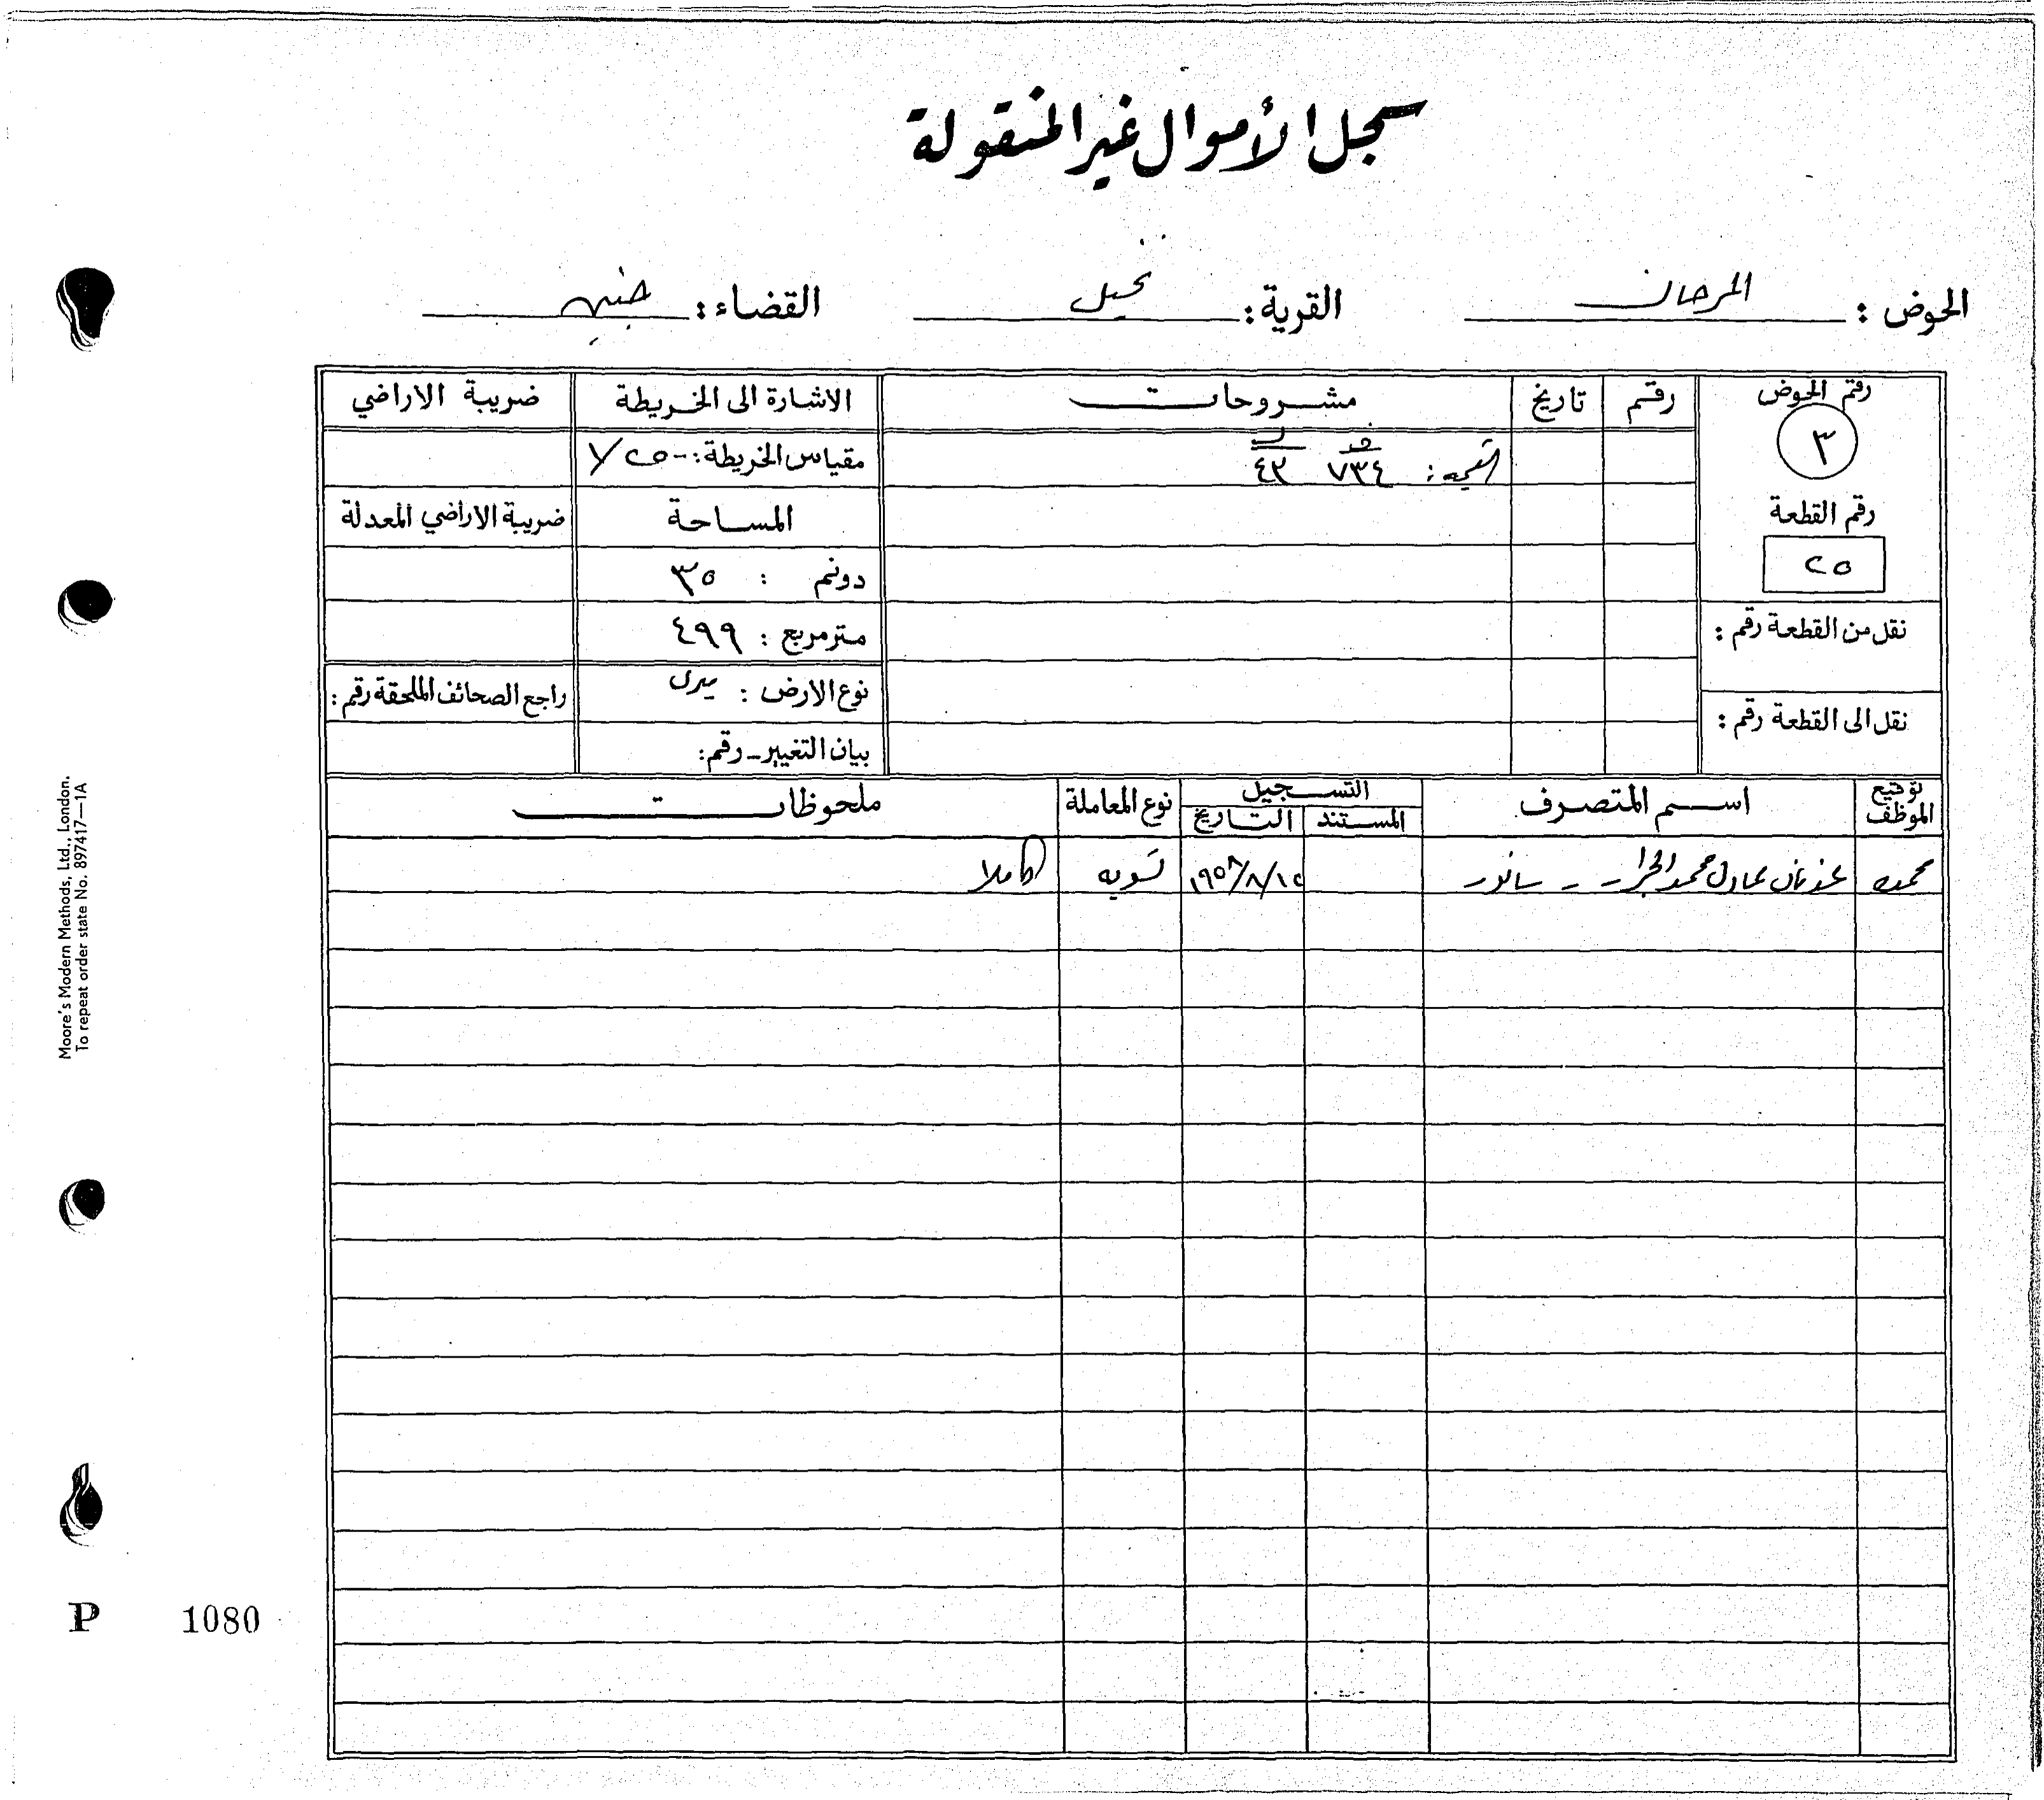 سجل الأموال غير المنقولة
الحوض : المرحان القرية : القضاء : جنين
رقم الحوض رقم تاريخ مشروحات الاشارة الى الخريطة ضريبة الاراضي
٣ القيمة : ٧٣٤ ٤٣ مقياس الخريطة :
رقم القطعة المساحة ضريبة الاراضي المعدلة
٢٥ دونم : ٣٥
نقل من القطعة رقم : متر مربع : ٤٩٩
نوع الارض : ميري راجع الصحائف الملحقة رقم :
نقل الى القطعة رقم : بيان التغيير - رقم :
توقيع الموظف اسم المتصرف التسجيل نوع المعاملة ملحوظات
المستند التاريخ
عدنان عادل محمد الجرار - - سانور تسويه كاملا
Moore's Modern Methods, Ltd., London.
To repeat order state No. 897417—1A
P 1080